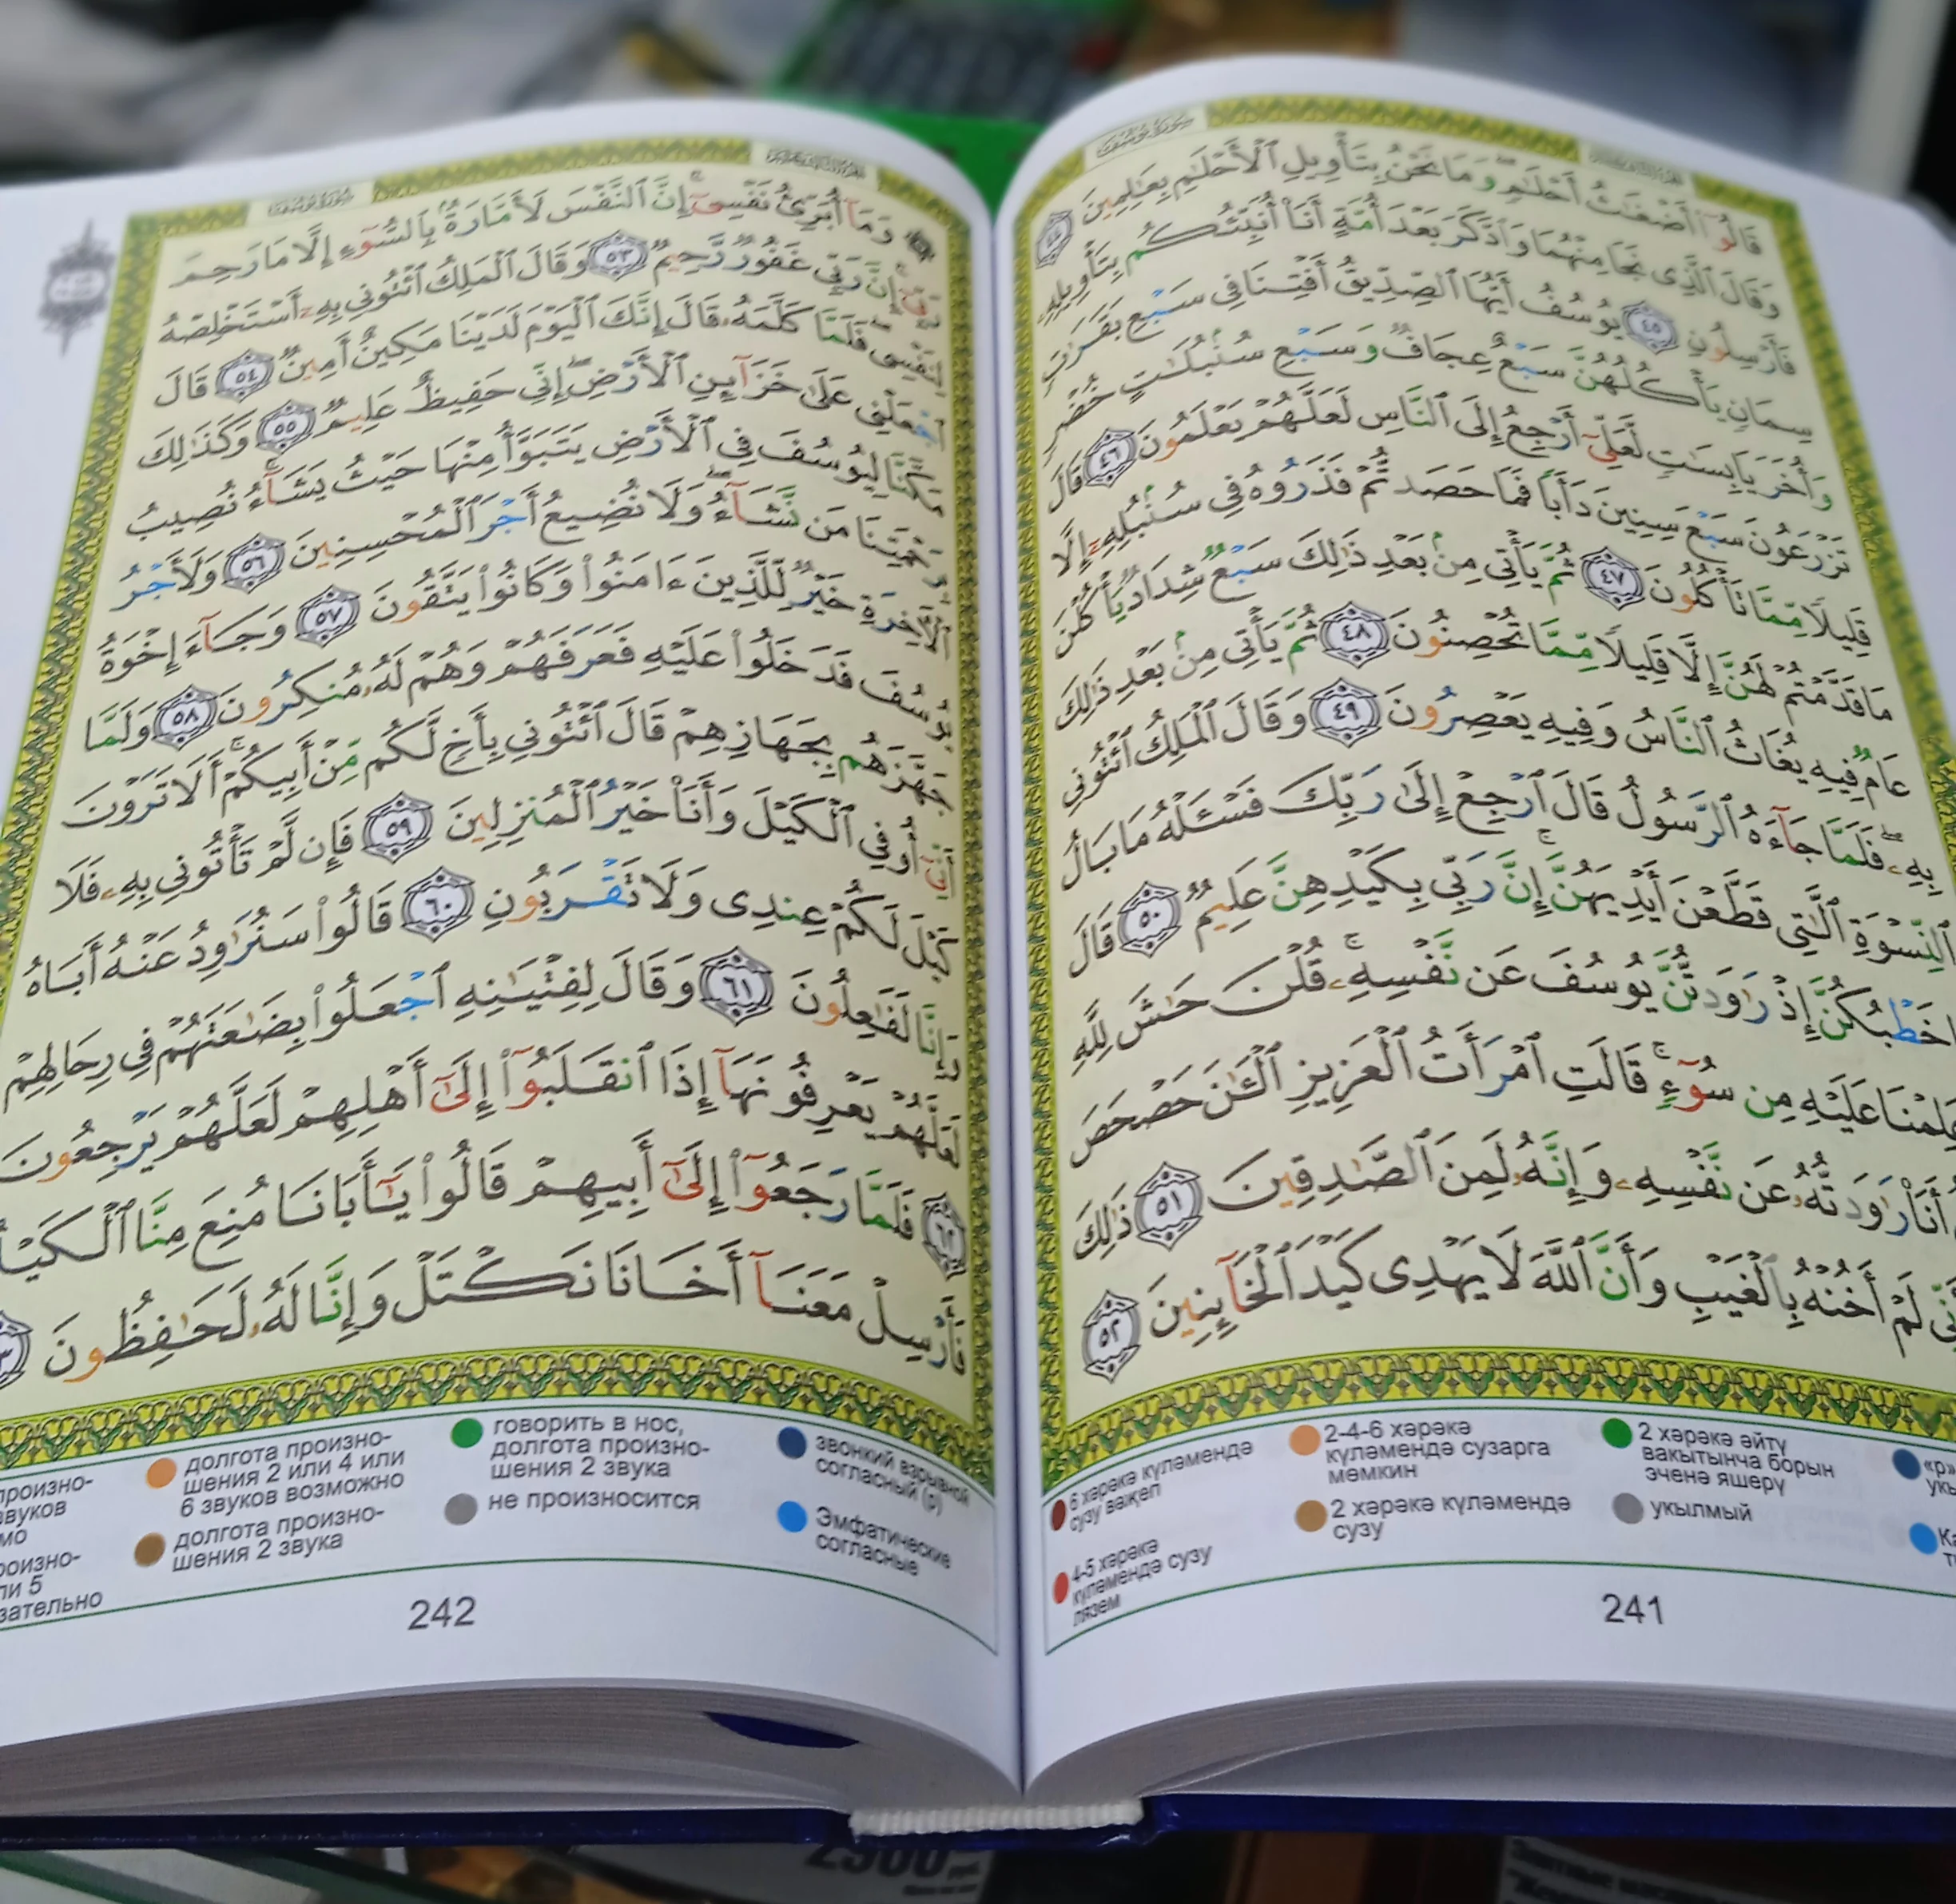 قَالُوٓا۟ أَضْغَـٰثُ أَحْلَـٰمٍ ۖ وَمَا نَحْنُ بِتَأْوِيلِ ٱلْأَحْلَـٰمِ بِعَـٰلِمِينَ ٤٤
وَقَالَ ٱلَّذِى نَجَا مِنْهُمَا وَٱدَّكَرَ بَعْدَ أُمَّةٍ أَنَا۠ أُنَبِّئُكُم بِتَأْوِيلِهِۦ
فَأَرْسِلُونِ ٤٥ يُوسُفُ أَيُّهَا ٱلصِّدِّيقُ أَفْتِنَا فِى سَبْعِ بَقَرَٰتٍ
سِمَانٍ يَأْكُلُهُنَّ سَبْعٌ عِجَافٌ وَسَبْعِ سُنۢبُلَـٰتٍ خُضْرٍ
وَأُخَرَ يَابِسَـٰتٍ لَّعَلِّىٓ أَرْجِعُ إِلَى ٱلنَّاسِ لَعَلَّهُمْ يَعْلَمُونَ ٤٦ قَالَ
تَزْرَعُونَ سَبْعَ سِنِينَ دَأَبًا فَمَا حَصَدتُّمْ فَذَرُوهُ فِى سُنۢبُلِهِۦٓ إِلَّا
قَلِيلًا مِّمَّا تَأْكُلُونَ ٤٧ ثُمَّ يَأْتِى مِنۢ بَعْدِ ذَٰلِكَ سَبْعٌ شِدَادٌ يَأْكُلْنَ
مَا قَدَّمْتُمْ لَهُنَّ إِلَّا قَلِيلًا مِّمَّا تُحْصِنُونَ ٤٨ ثُمَّ يَأْتِى مِنۢ بَعْدِ ذَٰلِكَ
عَامٌ فِيهِ يُغَاثُ ٱلنَّاسُ وَفِيهِ يَعْصِرُونَ ٤٩ وَقَالَ ٱلْمَلِكُ ٱئْتُونِى
بِهِۦ ۖ فَلَمَّا جَآءَهُ ٱلرَّسُولُ قَالَ ٱرْجِعْ إِلَىٰ رَبِّكَ فَسْـَٔلْهُ مَا بَالُ
ٱلنِّسْوَةِ ٱلَّـٰتِى قَطَّعْنَ أَيْدِيَهُنَّ ۚ إِنَّ رَبِّى بِكَيْدِهِنَّ عَلِيمٌ ٥٠ قَالَ
خَطْبُكُنَّ إِذْ رَٰوَدتُّنَّ يُوسُفَ عَن نَّفْسِهِۦ ۚ قُلْنَ حَـٰشَ لِلَّهِ
عَلِمْنَا عَلَيْهِ مِن سُوٓءٍ ۚ قَالَتِ ٱمْرَأَتُ ٱلْعَزِيزِ ٱلْـَٔـٰنَ حَصْحَصَ
أَنَا۠ رَٰوَدتُّهُۥ عَن نَّفْسِهِۦ وَإِنَّهُۥ لَمِنَ ٱلصَّـٰدِقِينَ ٥١ ذَٰلِكَ
لَمْ أَخُنْهُ بِٱلْغَيْبِ وَأَنَّ ٱللَّهَ لَا يَهْدِى كَيْدَ ٱلْخَآئِنِينَ ٥٢
6 хәрәкә күләмендә
сузу вәҗеп
4-5 хәрәкә
күләмендә сузу
лязем
2-4-6 хәрәкә
күләмендә сузарга
мөмкин
2 хәрәкә күләмендә
сузу
2 хәрәкә әйтү
вакытынча борын
эченә яшерү
укылмый
«р»
241
وَمَآ أُبَرِّئُ نَفْسِىٓ ۚ إِنَّ ٱلنَّفْسَ لَأَمَّارَةٌۢ بِٱلسُّوٓءِ إِلَّا مَا رَحِمَ
رَبِّىٓ ۚ إِنَّ رَبِّى غَفُورٌ رَّحِيمٌ ٥٣ وَقَالَ ٱلْمَلِكُ ٱئْتُونِى بِهِۦٓ أَسْتَخْلِصْهُ
لِنَفْسِى ۖ فَلَمَّا كَلَّمَهُۥ قَالَ إِنَّكَ ٱلْيَوْمَ لَدَيْنَا مَكِينٌ أَمِينٌ ٥٤ قَالَ
ٱجْعَلْنِى عَلَىٰ خَزَآئِنِ ٱلْأَرْضِ ۖ إِنِّى حَفِيظٌ عَلِيمٌ ٥٥ وَكَذَٰلِكَ
مَكَّنَّا لِيُوسُفَ فِى ٱلْأَرْضِ يَتَبَوَّأُ مِنْهَا حَيْثُ يَشَآءُ ۚ نُصِيبُ
بِرَحْمَتِنَا مَن نَّشَآءُ ۖ وَلَا نُضِيعُ أَجْرَ ٱلْمُحْسِنِينَ ٥٦ وَلَأَجْرُ
ٱلْـَٔاخِرَةِ خَيْرٌ لِّلَّذِينَ ءَامَنُوا۟ وَكَانُوا۟ يَتَّقُونَ ٥٧ وَجَآءَ إِخْوَةُ
يُوسُفَ فَدَخَلُوا۟ عَلَيْهِ فَعَرَفَهُمْ وَهُمْ لَهُۥ مُنكِرُونَ ٥٨ وَلَمَّا
جَهَّزَهُم بِجَهَازِهِمْ قَالَ ٱئْتُونِى بِأَخٍ لَّكُم مِّنْ أَبِيكُمْ ۚ أَلَا تَرَوْنَ
أَنِّىٓ أُوفِى ٱلْكَيْلَ وَأَنَا۠ خَيْرُ ٱلْمُنزِلِينَ ٥٩ فَإِن لَّمْ تَأْتُونِى بِهِۦ فَلَا
كَيْلَ لَكُمْ عِندِى وَلَا تَقْرَبُونِ ٦٠ قَالُوا۟ سَنُرَٰوِدُ عَنْهُ أَبَاهُ
وَإِنَّا لَفَـٰعِلُونَ ٦١ وَقَالَ لِفِتْيَـٰنِهِ ٱجْعَلُوا۟ بِضَـٰعَتَهُمْ فِى رِحَالِهِمْ
لَعَلَّهُمْ يَعْرِفُونَهَآ إِذَا ٱنقَلَبُوٓا۟ إِلَىٰٓ أَهْلِهِمْ لَعَلَّهُمْ يَرْجِعُونَ
٦٢ فَلَمَّا رَجَعُوٓا۟ إِلَىٰٓ أَبِيهِمْ قَالُوا۟ يَـٰٓأَبَانَا مُنِعَ مِنَّا ٱلْكَيْلُ
فَأَرْسِلْ مَعَنَآ أَخَانَا نَكْتَلْ وَإِنَّا لَهُۥ لَحَـٰفِظُونَ
долгота произно-
шения 2 или 4 или
6 звуков возможно
долгота произно-
шения 2 звука
говорить в нос,
долгота произно-
шения 2 звука
не произносится
звонкий взрывной
согласный (р)
Эмфатические
согласные
242